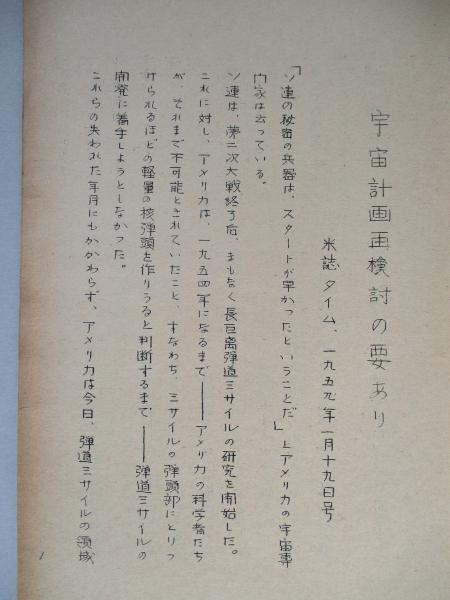 宇宙計画再検討の要あり
米誌タイム、一九五九年一月十九日号
「ソ連の秘密の兵器は、スタートが早かったということだ」とアメリカの宇宙専
門家は云っている。
ソ連は、第二次大戦終了后、まもなく長距離弾道ミサイルの研究を開始した。
これに対し、アメリカは、一九五四年になるまで――アメリカの科学者たち
が、それまで不可能とされていたこと、すなわち、ミサイルの弾頭部にとりつ
けられるほどの軽量の核弾頭を作りうると判断するまで――弾道ミサイルの
開発に着手しようとしなかった。
これらの失われた年月にもかかわらず、アメリカは今日、弾道ミサイルの領域